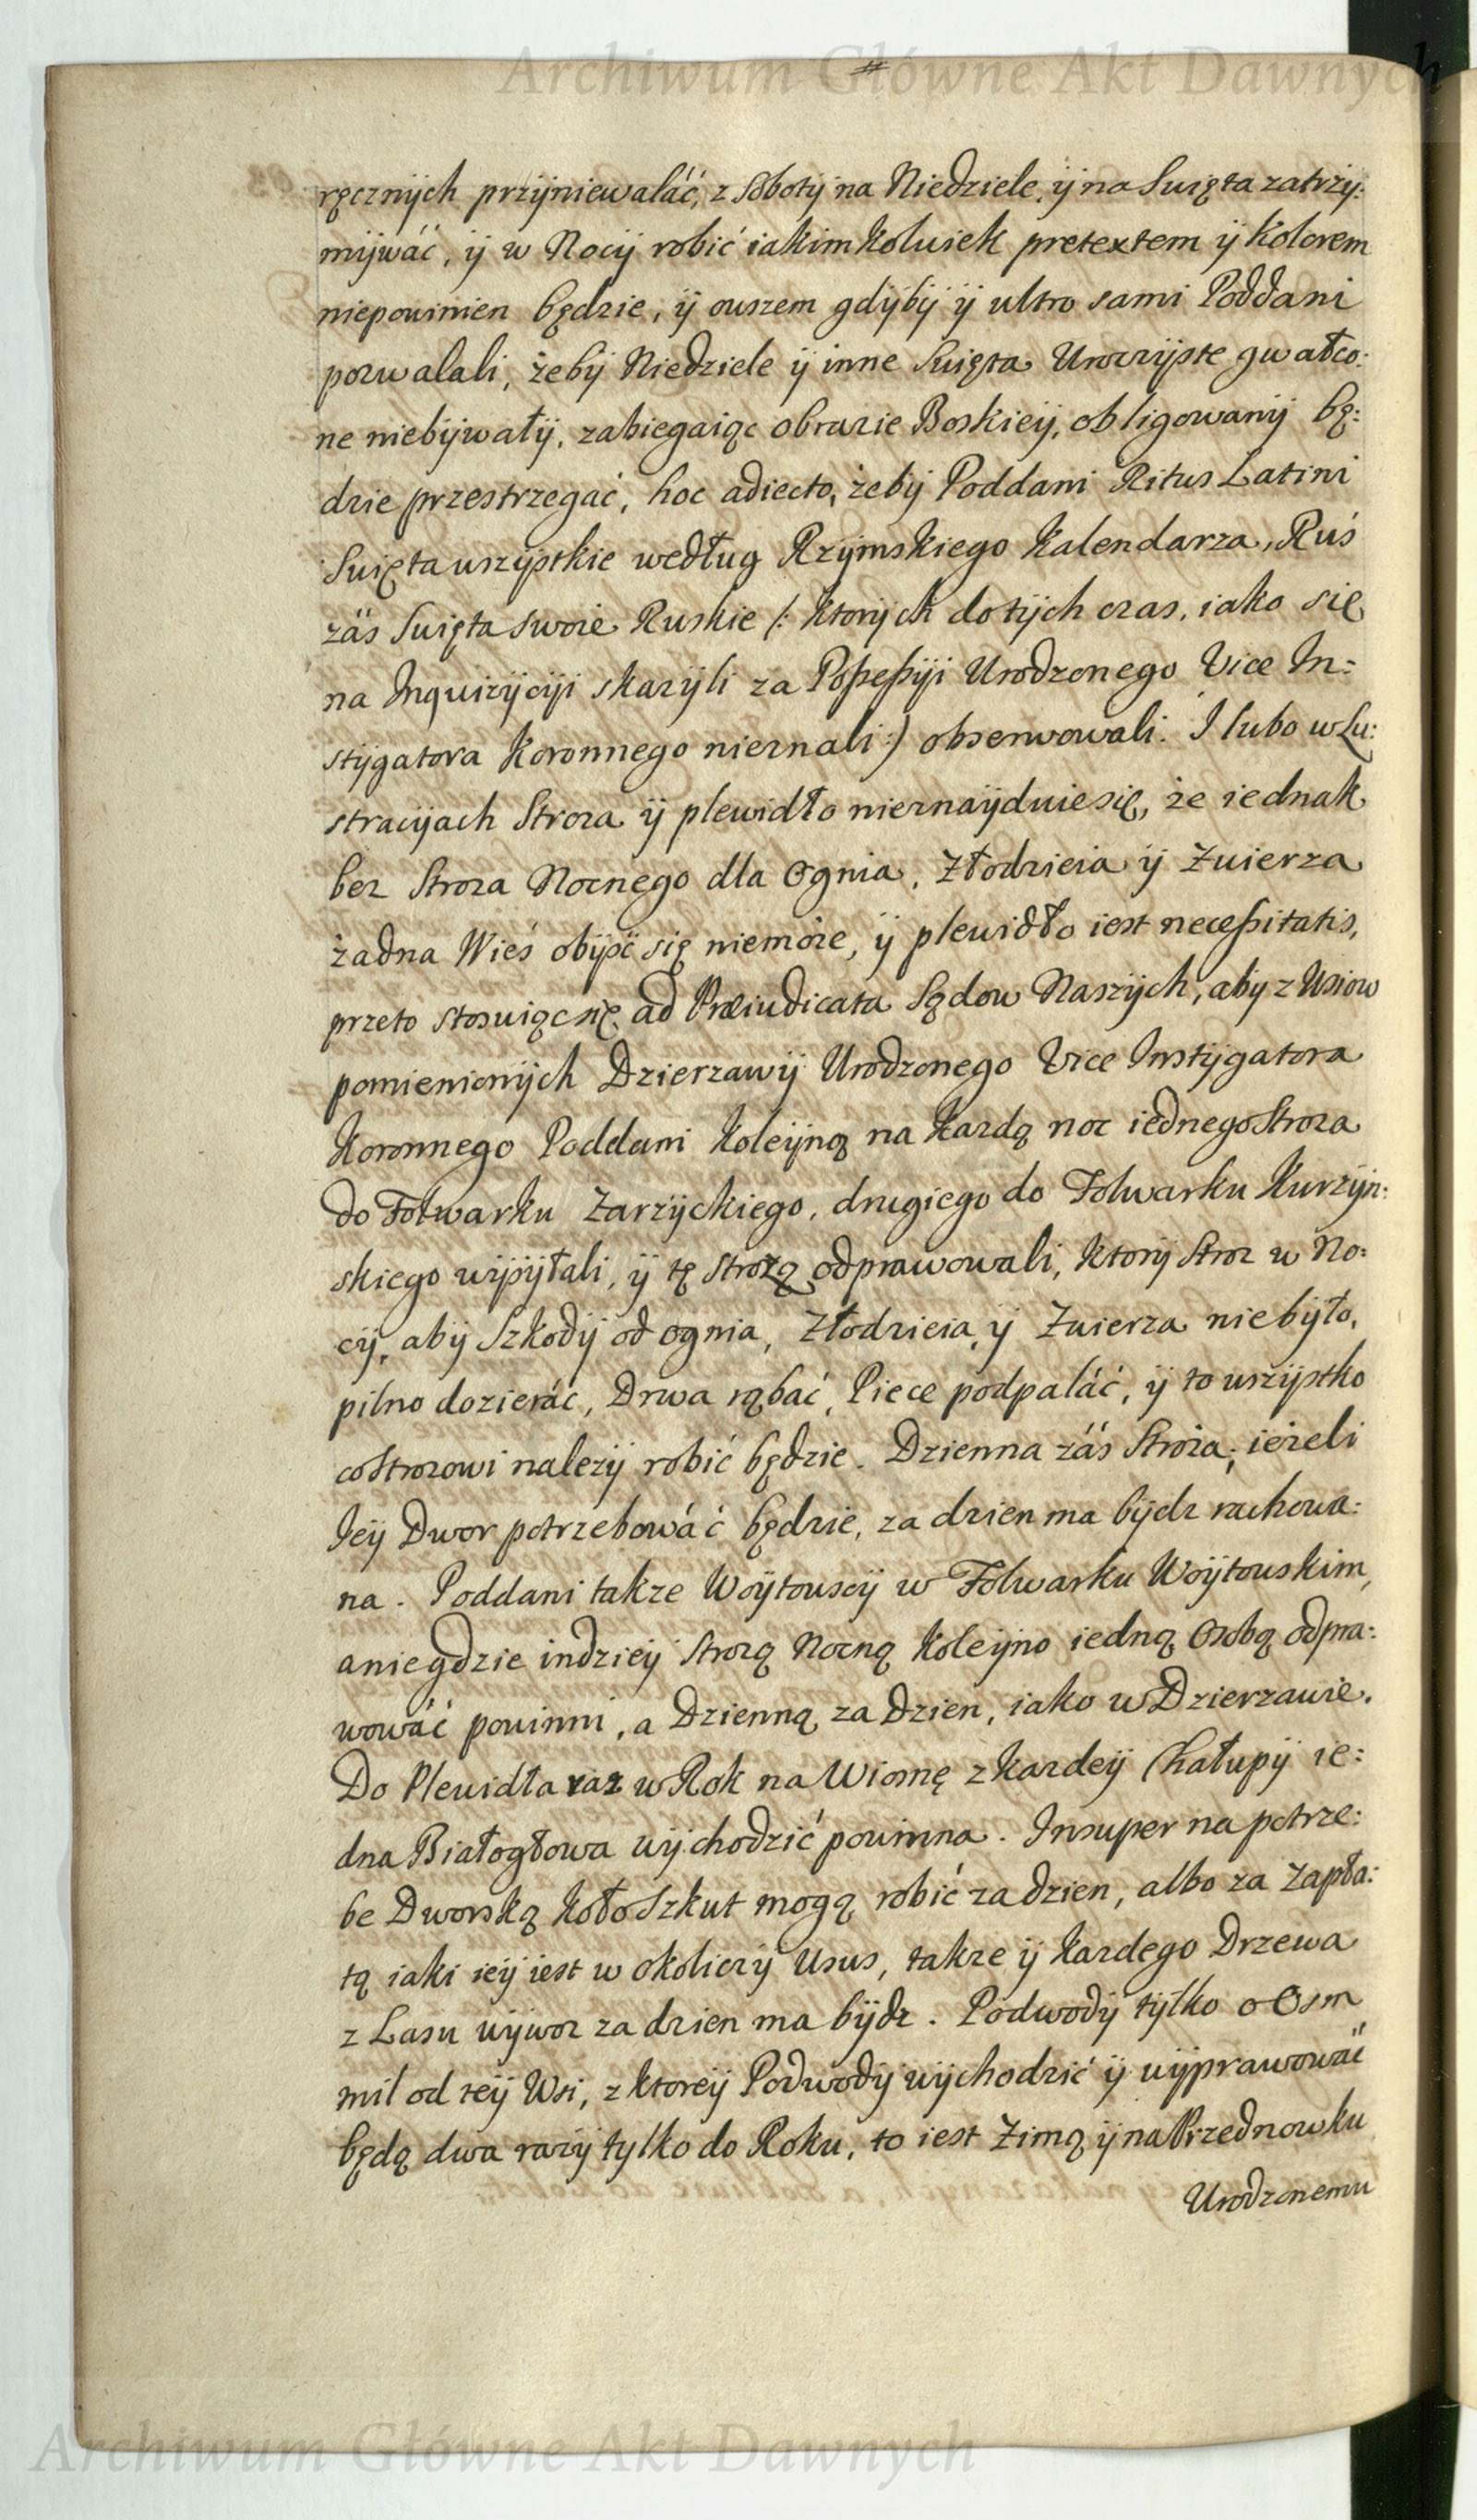 Archiwum Główne Akt Dawnych
#
ręcznÿch przÿniewaláć, z Sobotÿ na Niedziele, ÿ na Swięta zatrzÿ:
mÿwáć, ÿ w Nocÿ robić iakimkolwiek pretextem ÿ kolorem
niepowinien będzie, ÿ owszem gdÿbÿ ÿ ultro sami Poddani
pozwalali, żebÿ Niedziele ÿ inne Swięta Uroczÿste gwałco:
ne niebÿwałÿ, zabiegaiąc obrazie Boskieÿ, obligowanÿ bę:
dzie przestrzegać, hoc adiecto, żebÿ Poddani Ritus Latini
Swięta wszÿstkie według Rzÿmskiego Kalendarza, Ruś
záś Swięta swoie Ruskie /: ktorÿch do tÿch czas, iako się
na Inquizÿcÿi skarżÿli za Possessÿi Urodzonego Vice In:
stÿgatora Koronnego nieznali :) obserwowali. I lubo w Lu:
stracÿach Stroza ÿ plewidło nieznaÿduie się, że iednak
bez Stroza Nocnego dla Ognia, Złodzieia ÿ Zwierza
żadna Wieś obÿść się niemoże, ÿ plewidło iest necessitatis,
przeto stosuiąc się ad Præiudicata Sądow Naszÿch, aby z Wsiow
pomienionÿch Dzierzawÿ Urodzonego Vice Instÿgatora
Koronnego Poddani koleÿną na kazdą noc iednego Stroza
do Folwarku Zarzÿckiego, drugiego do Folwarku Kurzÿn:
skiego wÿsÿłali, ÿ tę strożą odprawowali, ktorÿ Stroz w No:
cÿ, abÿ Szkodÿ od ognia, Złodzieia, ÿ Zwierza niebÿło,
pilno dozieráć, Drwa rąbáć, Piece podpaláć, ÿ to wszÿstko
co Strozowi nalezÿ robić będzie. Dzienna záś Stroża, ieżeli
Ieÿ Dwor potrzebowáć będzie, za dzien ma bÿdz rachowa:
na. Poddani takze Woÿtowscÿ w Folwarku Woÿtowskim,
a nie gdzie indzieÿ Strozą Nocną koleÿno iedną Osobą odpra:
wowáć powinni, a Dzienną za Dzien, iako w Dzierzawie.
Do Plewidła raz w Rok na Wiosnę z kazdeÿ Chałupÿ ie:
dna Białogłowa wÿchodzić powinna. Insuper na potrze:
be Dworską koło Szkut mogą robić za dzien, albo za Zapła:
tą iaki ieÿ iest w okoliczÿ Usus, takze ÿ kazdego Drzewa
z Lasu wÿwoz za dzien ma bÿdz. Podwodÿ tÿlko o Osm
mil od teÿ Wsi, z ktoreÿ Podwodÿ wÿchodzić ÿ wÿprawowáć
będą dwa razÿ tylko do Roku, to iest Zimą ÿ na Przednowku
Urodzonemu
Archiwum Główne Akt Dawnych